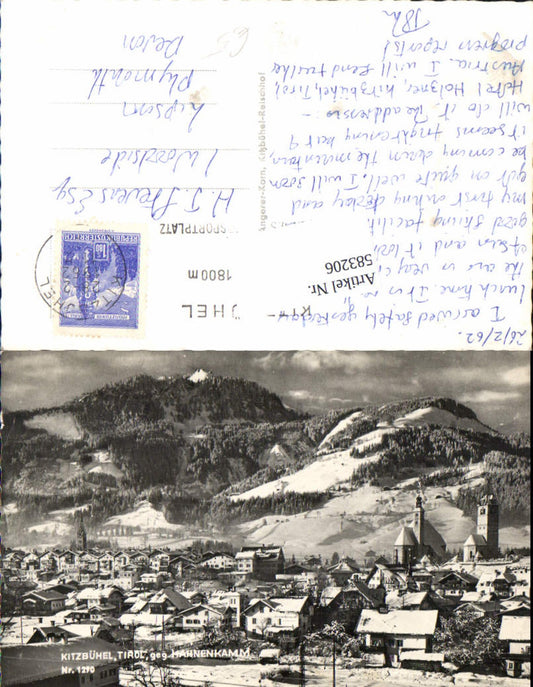 26/2/62.
I arrived safely yesterday
lunch time. It is
the air is very
often and it
good skiing facilit
my first outing today and
got on quite well. I will soon
be coming down the mountain,
it seems frightening but I
will do it. The address is :-
Hotel Holzner, Kitzbühel, Tirol,
Austria. I will send further
progress reports!
H. J. Stevens Esq
1 Woodside
Lipson
Plymouth
Devon
Angerer-Korn, Kitzbühel-Reisenhof
SPORTPLATZ
1800 m
HEL
REPUBLIK ÖSTERREICH
Artikel Nr.
583206
KITZBÜHEL, TIROL, geg. HAHNENKAMM
Nr. 1290